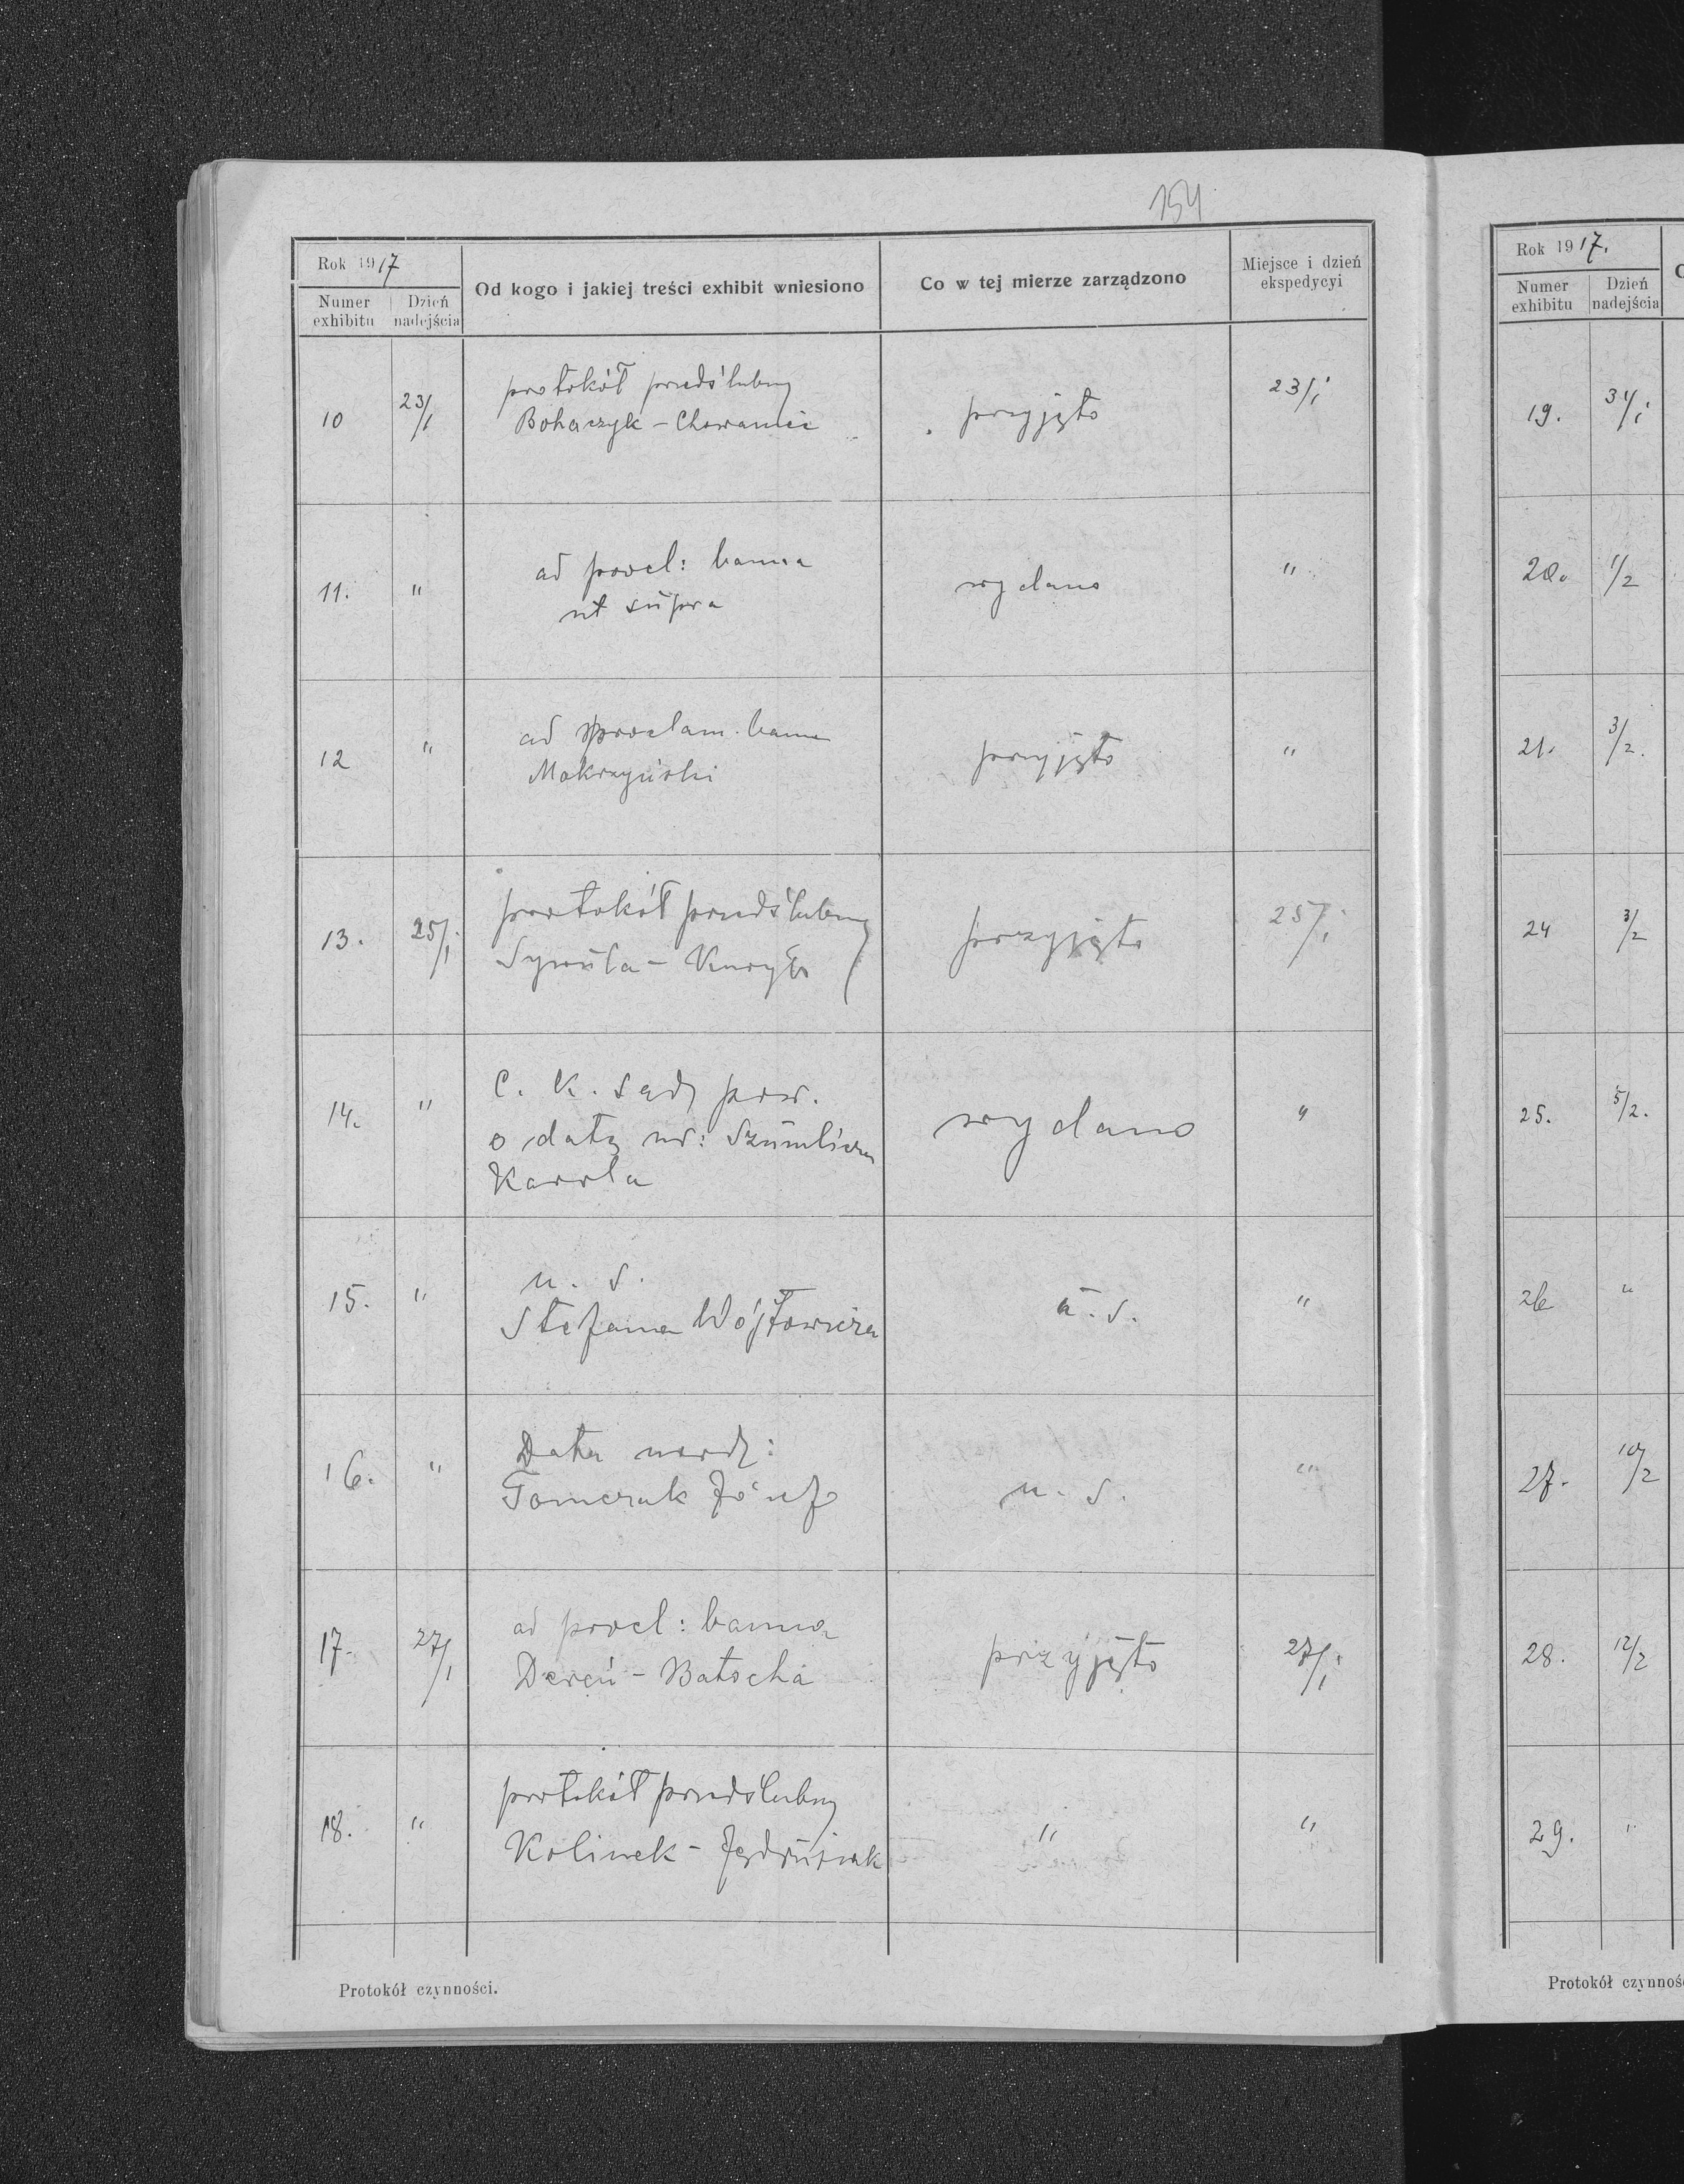 154
Rok 1917
Numer exhibitu
Dzień nadejścia
Od kogo i jakiej treści exhibit wniesiono
Co w tej mierze zarządzono
Miejsce i dzień ekspedycyi
10 23/1 protokół przedślubny przyjęto 23/1
Bohaczyk - Chowaniec
11. " ad procl: banna wydano "
ut supra
12 " ad proclam. banna przyjęto "
Mokrzyński
13. 25/1 protokół przedślubny przyjęto 25/1
14. " C. K. Sąd pow. wydano "
o datę ur: Szumlicza
Karola
15. " u. s. u. s. "
Stefana Wójtowicza
16. " Data urodz: u. s. "
Tomczuk Józef
17. 27/1 ad procl: banna przyjęto 27/1
Dereń - Batocha
18. " protokół przedślubny " "
Kolinek - Jędrusiak
Protokół czynności.
Rok 1917.
Numer exhibitu
Dzień nadejścia
19. 31/1
20. 1/2
21. 3/2.
24 3/2
25. 5/2.
26 "
27. 10/2
28. 12/2
29. "
Protokół czynnoś